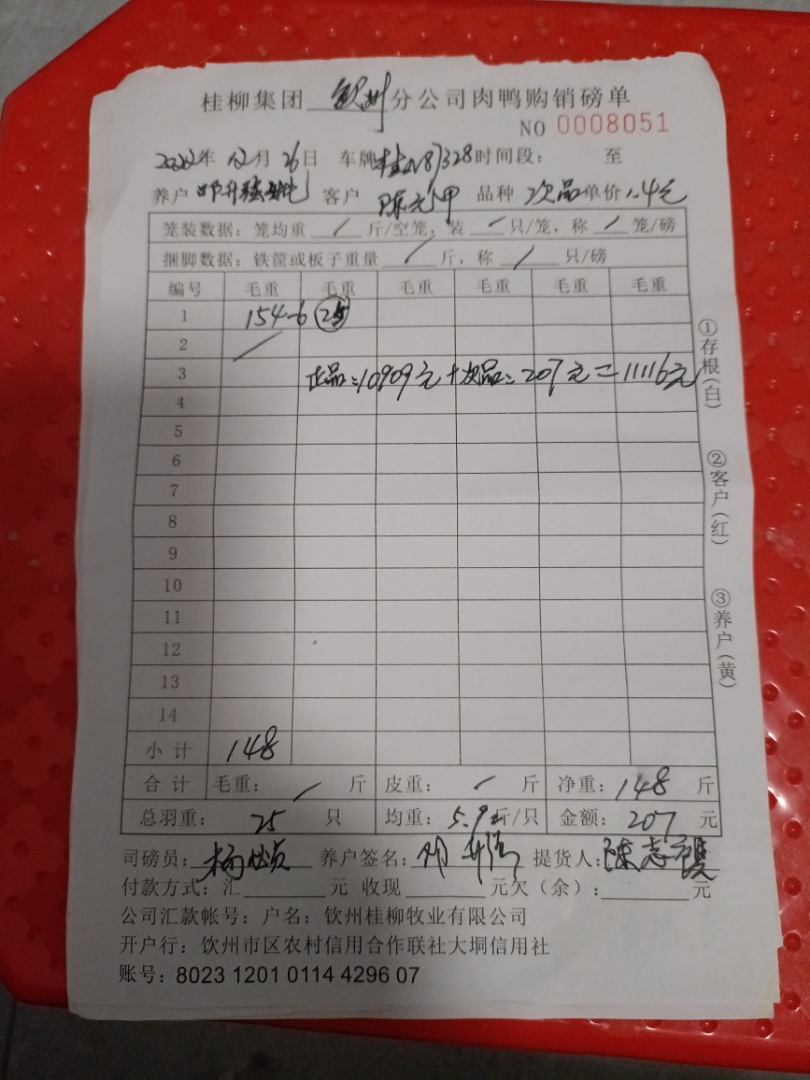 桂柳集团 钦州 分公司肉鸭购销磅单
NO 0008051
2022年 12月 26日 车牌 桂N87328 时间段: 至
养户 客户 陈元甲 品种 次品 单价 1.4元
笼装数据: 笼均重 / 斤/空笼, 装 / 只/笼, 称 / 笼/磅
捆脚数据: 铁筐或板子重量 / 斤, 称 / 只/磅
编号 毛重 毛重 毛重 毛重 毛重 毛重
1 154-6 25
2
3 正品=10909元+次品=207元=11116元
4
5
6
7
8
9
10
11
12
13
14
小计 148
合计 毛重: / 斤 皮重: / 斤 净重: 148 斤
总羽重: 25 只 均重: 5.9 斤/只 金额: 207 元
司磅员: 杨 养户签名: 提货人: 陈志
付款方式: 汇 元 收现 元欠(余): 元
公司汇款帐号: 户名: 钦州桂柳牧业有限公司
开户行: 钦州市区农村信用合作联社大垌信用社
账号: 8023 1201 0114 4296 07
①存根(白)
②客户(红)
③养户(黄)